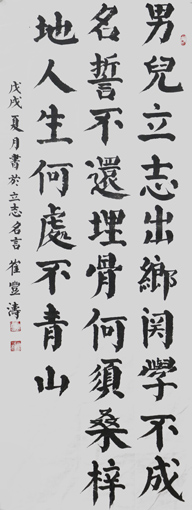 男兒立志出鄉関學不成
名誓不還埋骨何須桑梓
地人生何處不青山
戊戌夏月書於立志名言崔豐濤